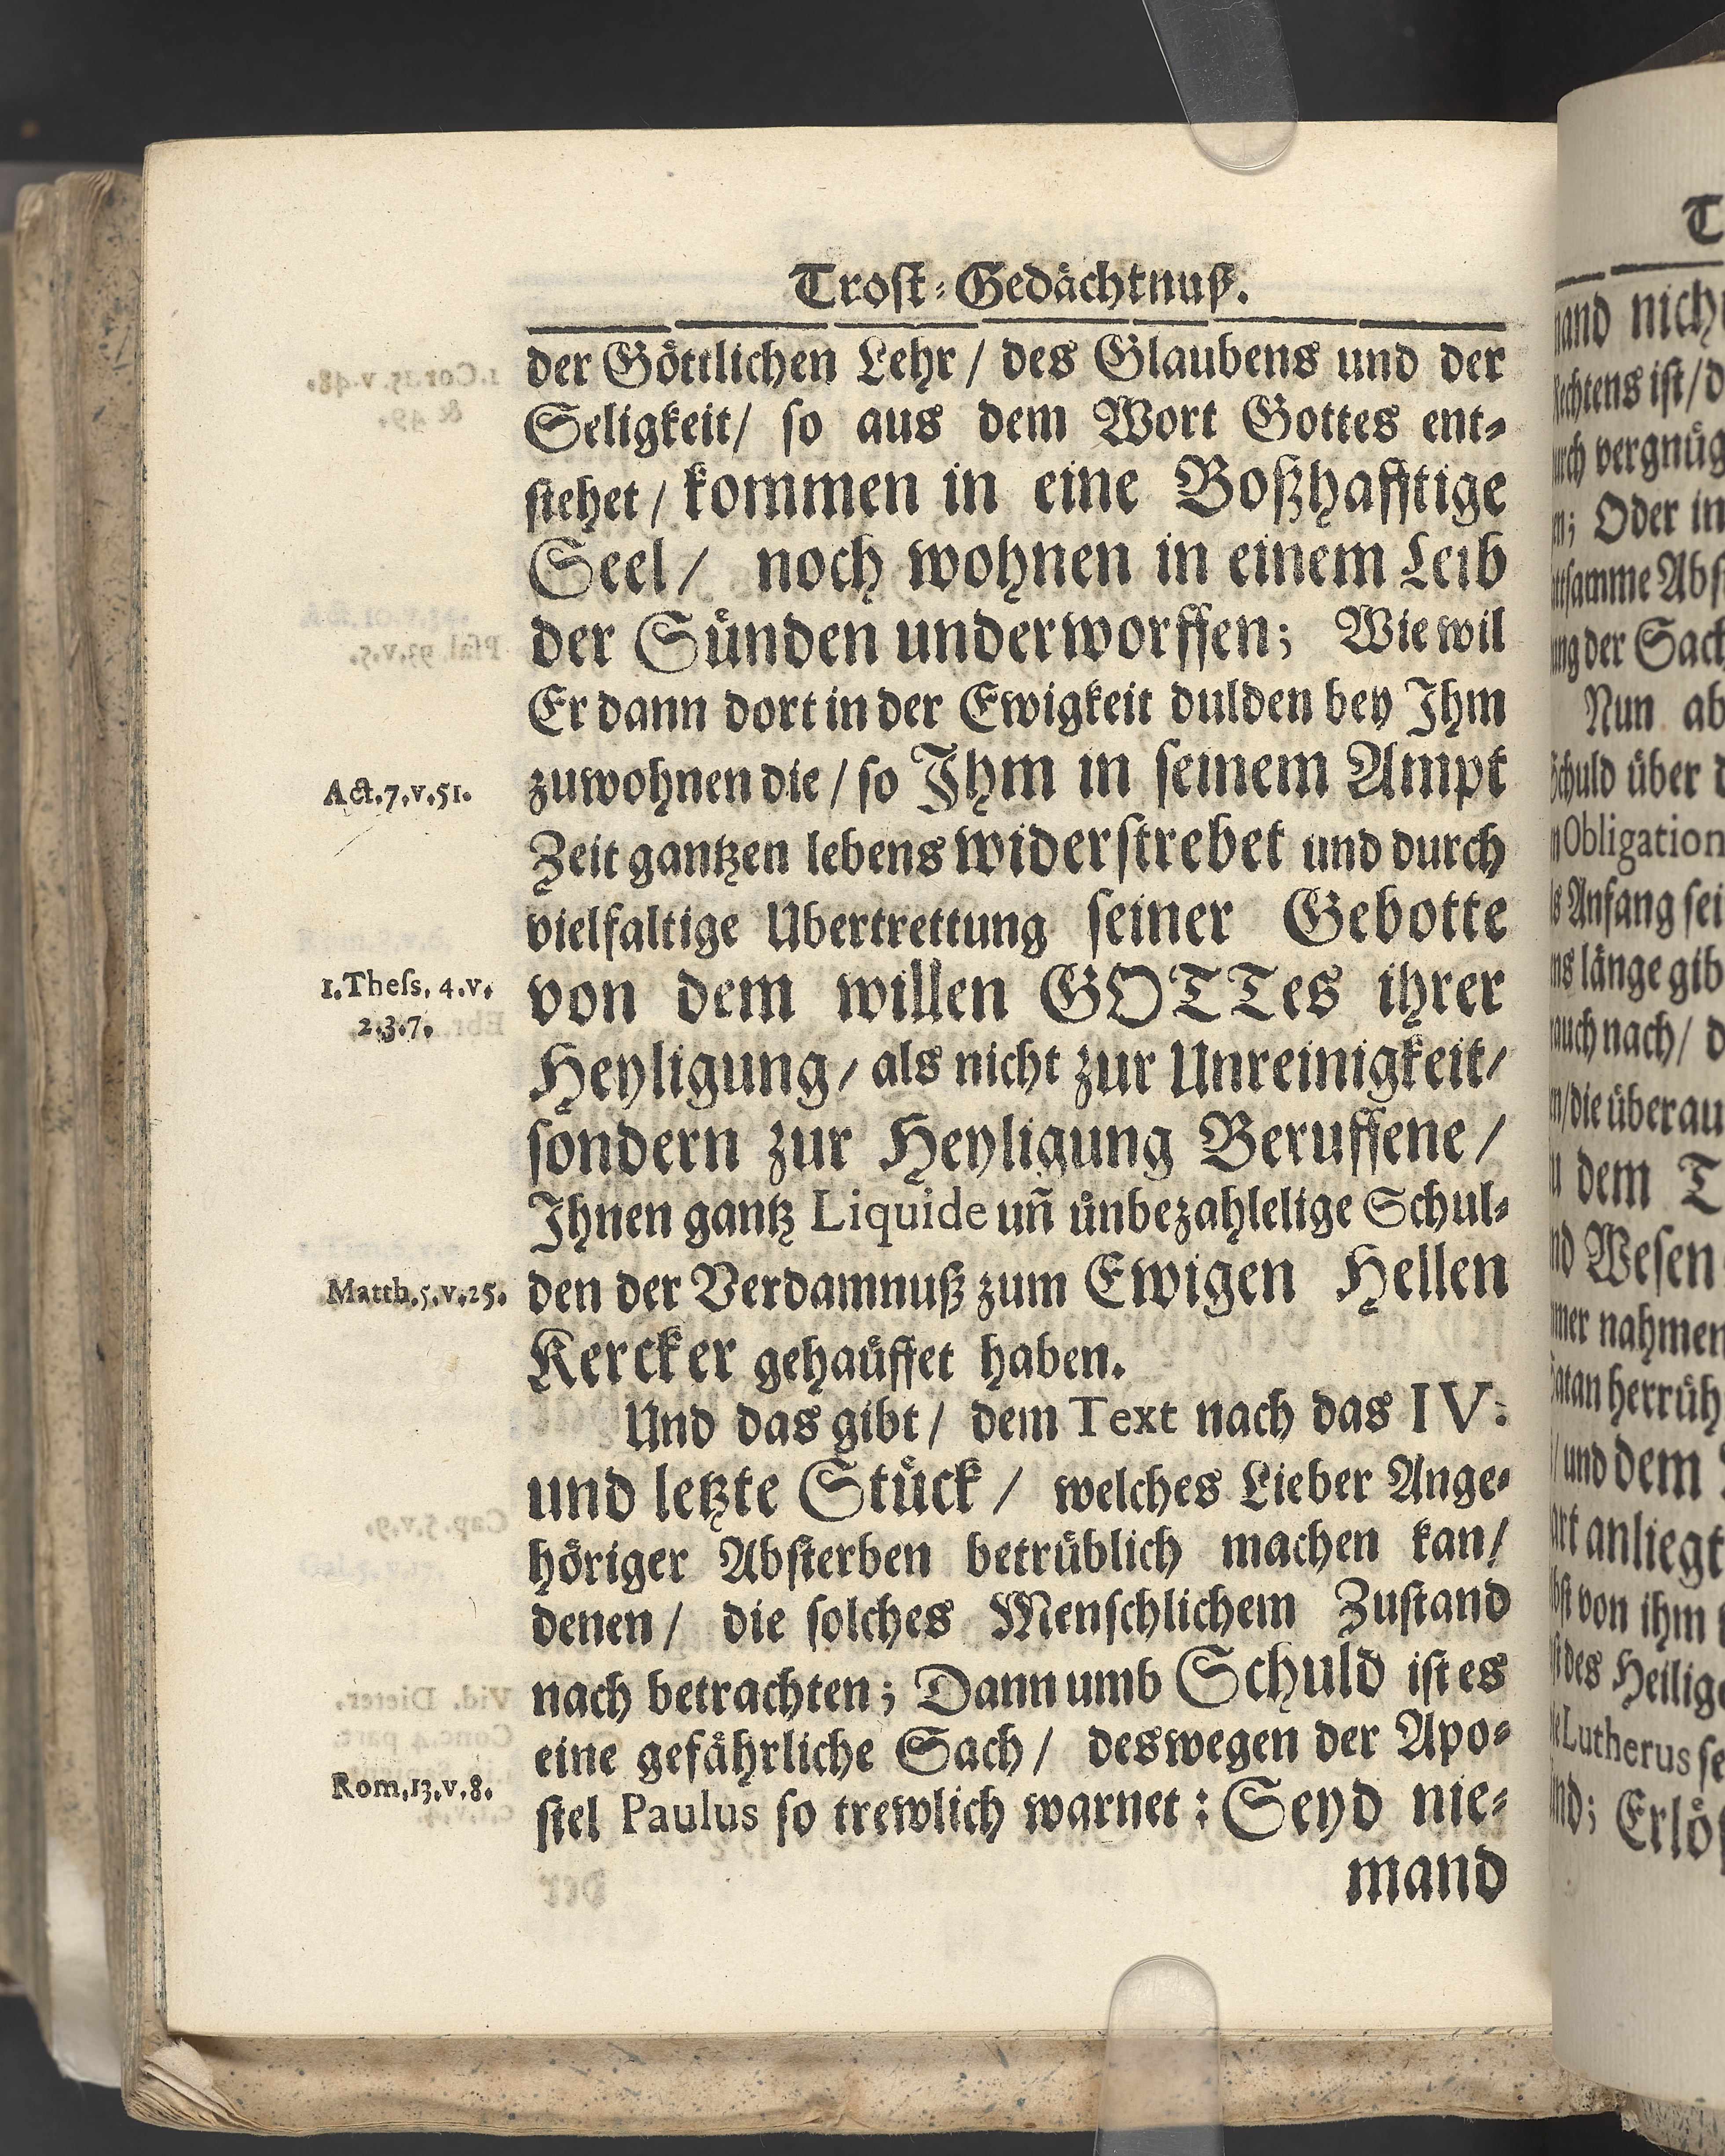 Trost-Gedächtnuß.
der Göttlichen Lehr / des Glaubens und der
Seligkeit / so aus dem Wort Gottes ent-
stehet / kommen in eine Boßhafftige
Seel / noch wohnen in einem Leib
der Sünden underworffen; Wie wil
Er dann dort in der Ewigkeit dulden bey Ihm
zuwohnen die / so Ihm in seinem Ampt
Act.7.v.51.
Zeit gantzen lebens widerstrebet und durch
vielfaltige Ubertrettung seiner Gebotte
von dem willen GOTTes ihrer
1.Thess. 4.v.
2.3.7.
Heyligung / als nicht zur Unreinigkeit /
sondern zur Heyligung Beruffene /
Ihnen gantz Liquide uñ ünbezahlelige Schul-
den der Verdamnuß zum Ewigen Hellen
Matth.5.v.25.
Kercker gehaüffet haben.
Und das gibt / dem Text nach das IV.
und letzte Stück / welches Lieber Ange-
höriger Absterben betrüblich machen kan /
denen / die solches Menschlichem Zustand
nach betrachten; Dann umb Schuld ist es
eine gefährliche Sach / deswegen der Apo-
stel Paulus so trewlich warnet : Seyd nie-
Rom.13.v.8.
mand
nich
ist / d
vergnüg
Oder in
der Sach
Nun ab
über
Obligation
Anfang sei
länge gib
nach /
die überau
dem T
Wesen
nahmen
herrüh
und dem
anliegt
von ihm
des Heilig
Lutherus se
Erlös